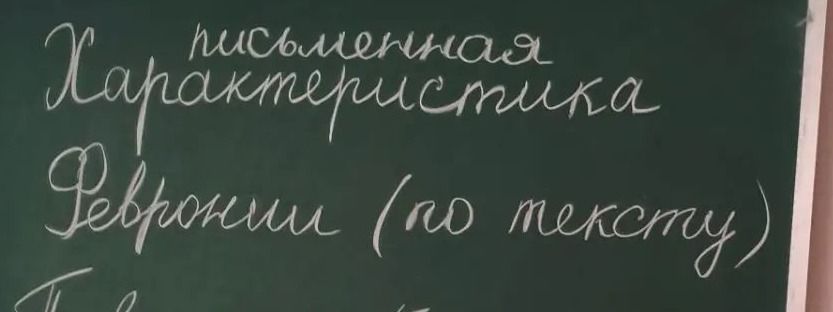 письменная
Характеристика
Февронии (по тексту)